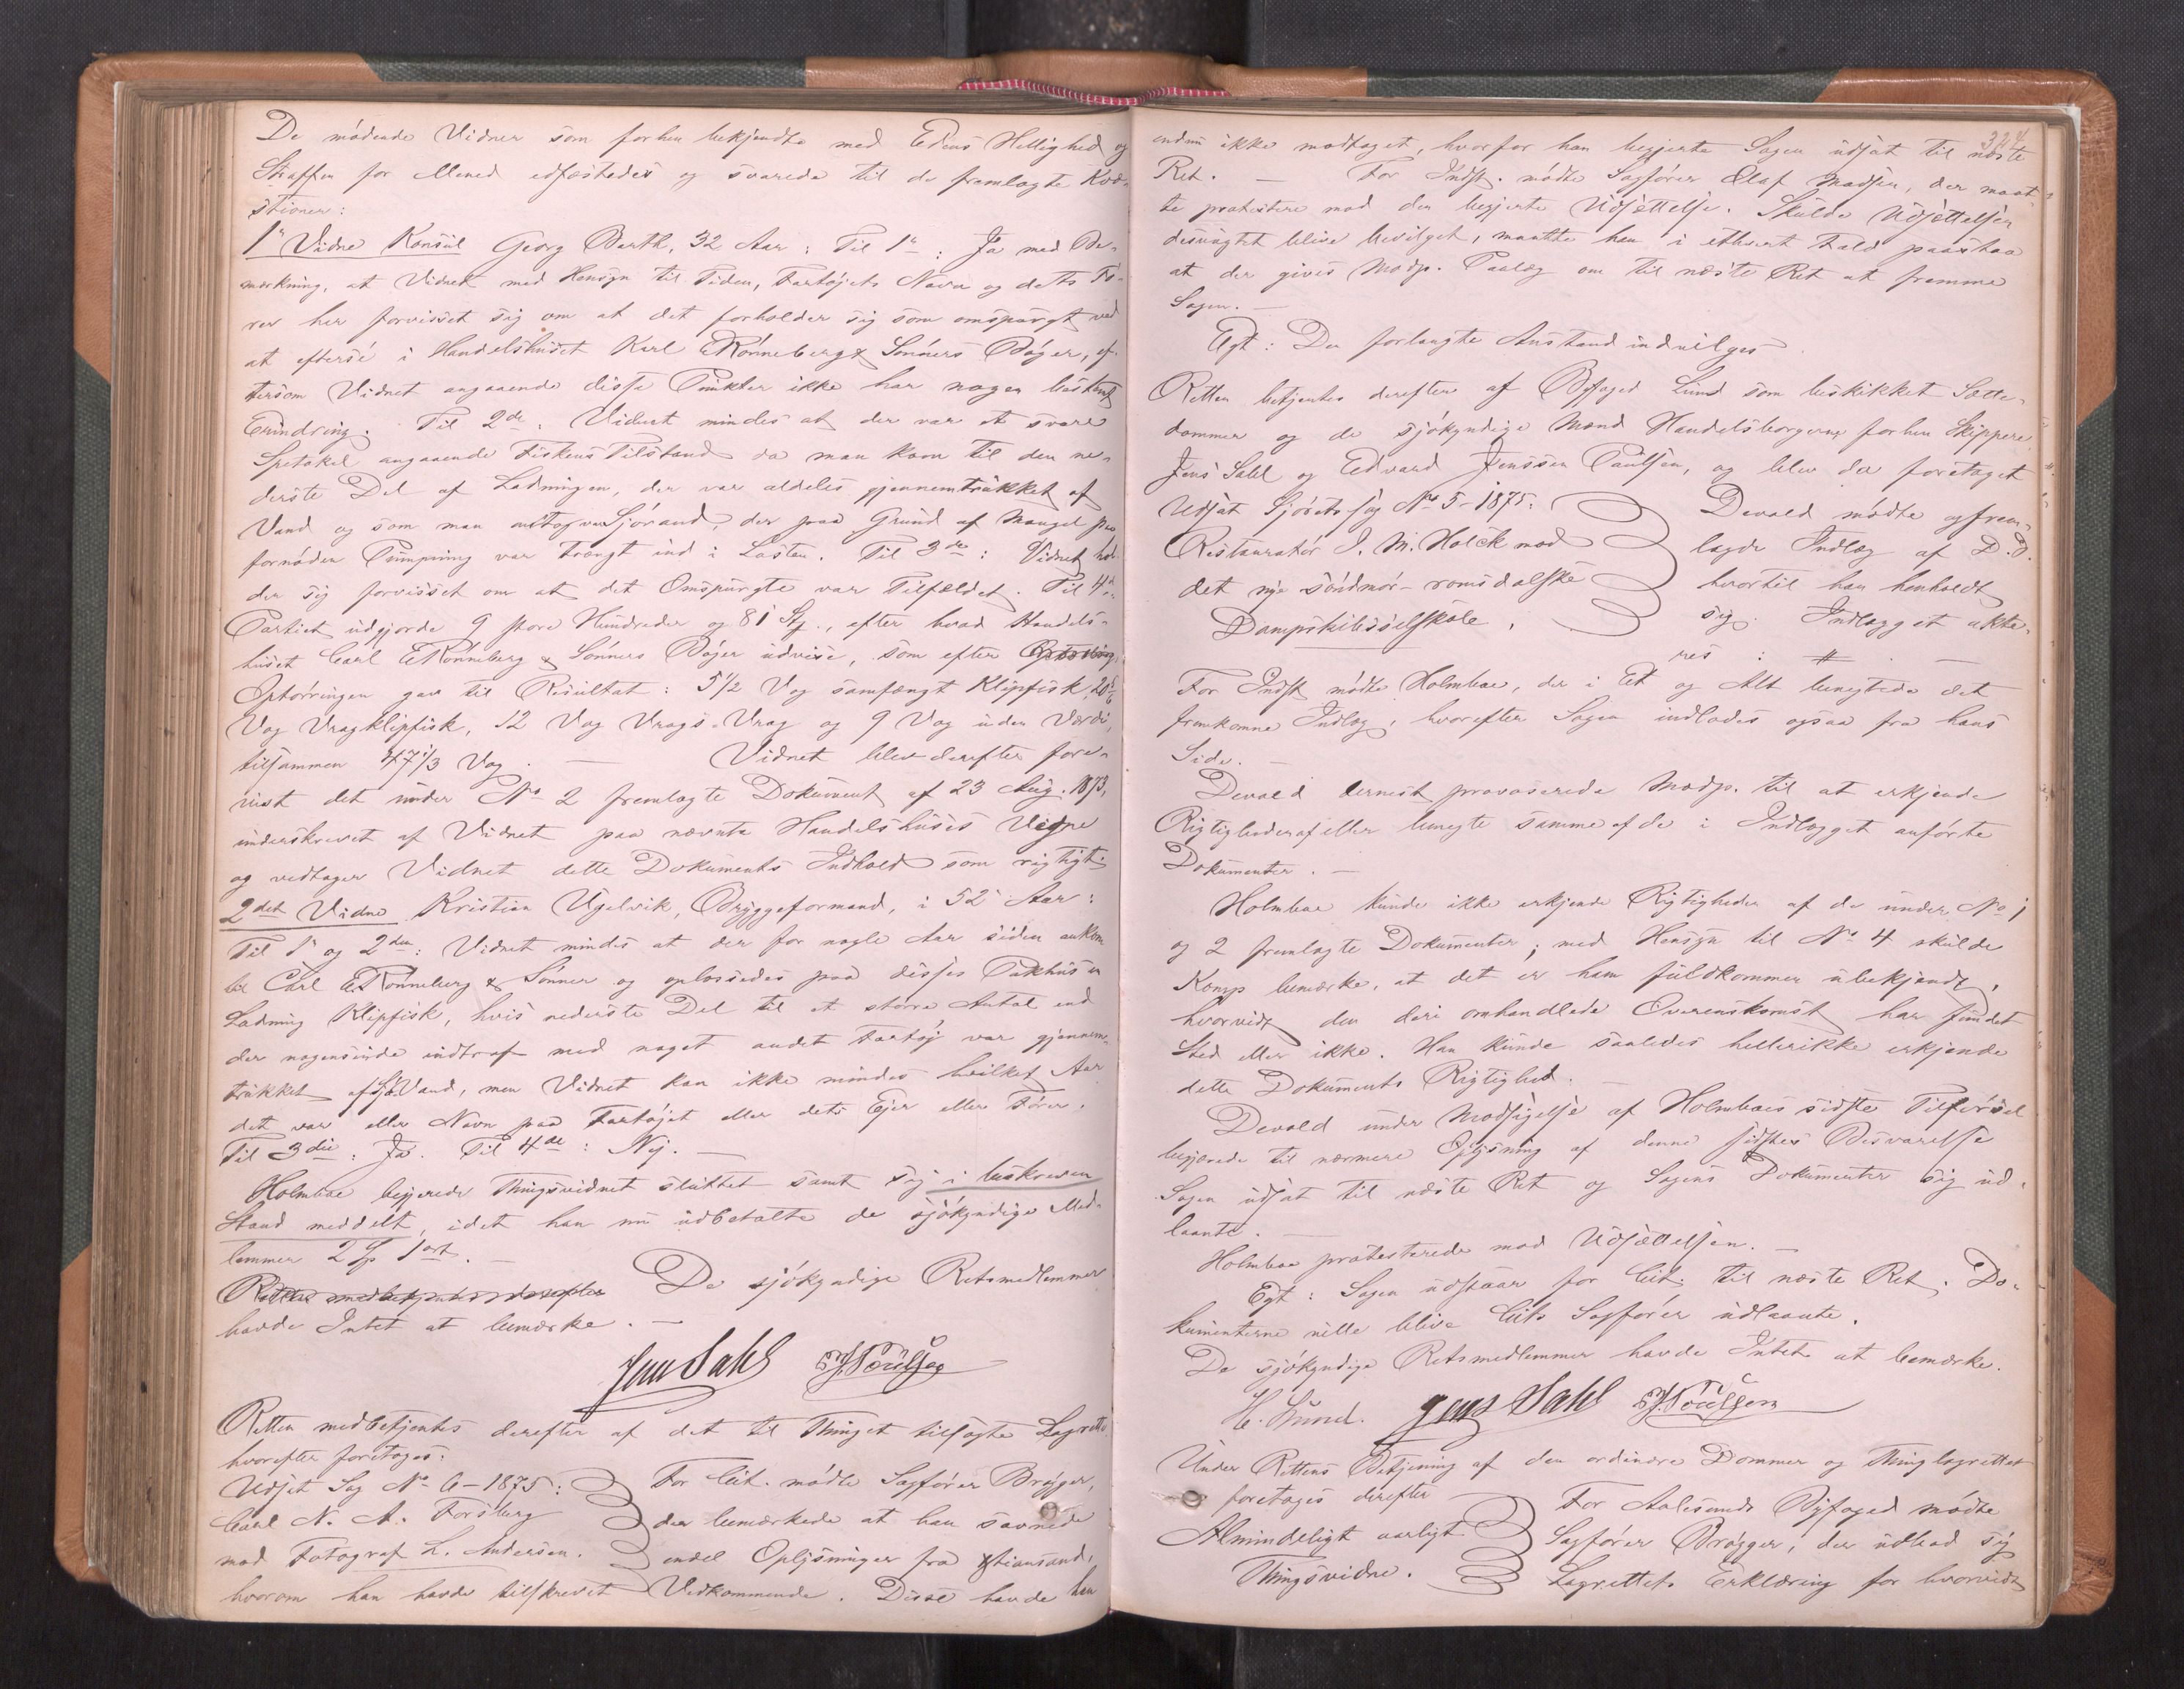 De mødende Vidner som forhen bekjendte med Edens Hellighed og
Straffen for Mened edfæstedes og svarede til de fremlagte Kvæ-
stioner:
1ste Vidne Konsul Georg Barth, 32 Aar: Til 1ste: Ja med Be-
mærkning, at Vidnet med Hensyn til Tiden, Fartøjets Navn og dets Fø-
rer har forvisset sig om at det forholder sig som omspurgt ved
at efterse i Handelshuset Karl E Rönneberg & Sønners Bøger, ef-
tersom Vidnet angaaende disse Punkter ikke har nogen bestemt
Erindring. Til 2de: Vidnet mindes at der var et svare
Spetakel angaaende Fiskens Tilstand da man kom til den ne-
derste Del af Ladningen, der var aldeles gjennemtrukket af
Vand og som man antog var Sjøvand, der paa Grund af Mangel paa
fornøden Pumpning var trængt ind i Lasten. Til 3die: Vidnet hol-
der sig forvisset om at det Omspurgte var Tilfældet. Til 4de:
Partiet udgjorde 9 store Hundreder og 81 Stk., efter hvad Handels-
huset Carl E Rönneberg & Sønners Bøger udvise, som efter
Optørringen gav til Resultat: 5 1/2 Vog samfængt Klipfisk, 20 5/6
Vog Vragklipfisk, 12 Vog Vrags-Vrag og 9 Vog uden Værdi,
tilsammen 47 1/3 Vog. — Vidnet blev derefter fore-
vist det under No 2 fremlagte Dokument af 23 Aug. 1873,
underskrevet af Vidnet paa nævnte Handelshuses Vegne
og vedtager Vidnet dette Dokuments Indhold som rigtigt.
2det Vidne Kristian Ugelvik, Bryggeformand, i 52 Aar:
Til 1ste og 2den: Vidnet mindes at der for nogle Aar siden ankom
til Carl E. Rönneberg & Sønner og oplossedes paa disses Pakhus en
Ladning Klipfisk, hvis nederste Del til et større Antal end
der nogensinde indtraf med noget andet Fartøj var gjennem-
trukket af Sjøvand, men Vidnet kan ikke mindes hvilket Aar
det var eller Navn paa Fartøjet eller dets Ejer eller Fører.
Til 3die: Ja. Til 4de: Nej. —
Holmboe begjerede Thingsvidnet sluttet samt sig i beskreven
Stand meddelt, idet han nu udbetalte de sjøkyndige Med-
lemmer 2 Sp 1 ort. —
Retten medbetjentes derefter De sjøkyndige Retsmedlemmer
havde Intet at bemærke. —
Jens Dahl E J Poulsen
Retten medbetjentes derefter af det til Thinget tilsagte Lagrette
hvorefter foretoges:
Udsat Sag No 6-1875: For Cit. mødte Sagfører Brøgger,
Carl N. A. Forsberg der bemærkede at han savnede
mod Fotograf L. Andersen. endel Oplysninger fra Xtiansand,
hvorom han havde tilskrevet Vedkommende. Disse havde han
324
endnu ikke modtaget, hvorfor han begjerte Sagen udsat til næste
Ret. — For Indst. mødte Sagfører Olaf Madsen, der maat-
te protestere mod den begjerte Udsættelse. Skulde Udsættelsen
desuagtet blive bevilget, maatte han i ethvert Fald paastaa
at der gives Modp. Paalæg om til næste Ret at fremme
Sagen. —
Egt: Den forlangte Anstand indvilges
Retten betjentes derefter af Byfoged Lund som beskikket Sætte-
dommer og de sjøkyndige Mænd Handelsborgerne forhen Skippere
Jens Dahl og Edvard Jenssen Paulsen, og blev da foretaget
Udsat Sjøretssag No 5-1875: Devold mødte og frem-
Restauratør J. M. Holck mod lagde Indlæg af D. D.
det nye søndmør-romsdalske hvortil han henholdt
Dampskibsselskab. sig. Indlægget akte-
res: # . —
For Indst mødte Holmboe, der i Et og Alt benegtede det
fremkomne Indlæg, hvorefter Sagen indlodes ogsaa fra hans
Side. —
Devold dernest provoserede Modp. til at erkjende
Rigtigheden af eller benegte samme af de i Indlægget anførte
Dokumenter. —
Holmboe kunde ikke erkjende Rigtigheden af de under No 1
og 2 fremlagte Dokumenter; med Hensyn til No 4 skulde
Komp bemærke, at det er ham fuldkommen ubekjendt,
hvorvidt den deri omhandlede Overenskomst har fundet
Sted eller ikke. Han kunde saaledes hellerikke erkjende
dette Dokuments Rigtighed. —
Devold under Modsigelse af Holmboes sidste Tilførsel
begjærede til nærmere Oplysning af dennes sidstes Besvarelse
Sagen udsat til næste Ret og Sagens Dokumenter sig ud-
laante. —
Holmboe protesterede mod Udsættelsen. —
Egt: Sagen udstaar for Cit. til næste Ret. Do-
kumenterne ville blive Cits Sagfører udlaante.
De sjøkyndige Retsmedlemmer havde Intet at bemærke.
H. Lund. Jens Dahl E J Poulsen
Under Rettens Betjening af den ordinære Dommer og Thinglagrettet
foretoges derefter
Almindeligt aarligt For Aalesunds Byfoged mødte
Thingsvidne. Sagfører Brøgger, der udbad sig
Lagrettets Erklæring for hvorvidt